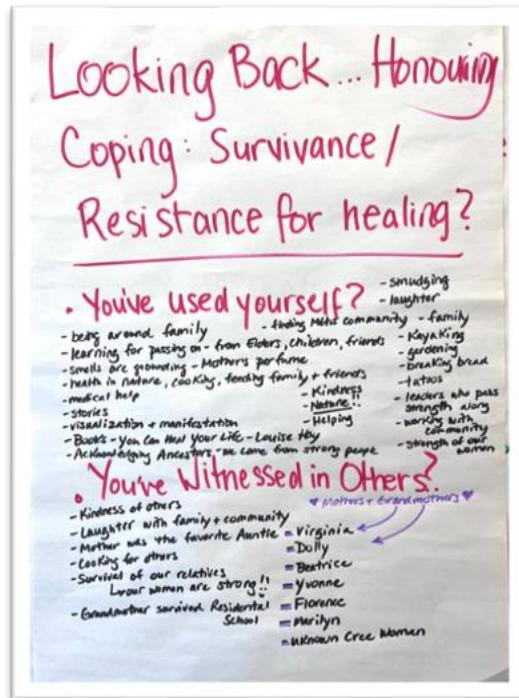 Looking Back... Honouring
Coping: Survivance/
Resistance for healing?
• You've used yourself?
- being around family
- learning for passing on - from Elders, children, friends
- smells are grounding - Mother's perfume
- health in nature, cooking, feeding family + friends
- medical help
- stories
- visualization + manifestation
- Books - You Can Heal Your Life - Louise Hay
- Acknowledging Ancestors - we come from strong people
- finding Métis community
- Kindness
- Nature!!
- Helping
- smudging
- laughter
- family
- Kayaking
- gardening
- breaking bread
- tatoos
- leaders who pass
strength along
- working with
community
- strength of our
women
• You've Witnessed in Others?
- Kindness of others
- Laughter with family + community
- Mother was the favorite Auntie
- Cooking for others
- Survival of our relatives
↳ our women are strong!!
- Grandmother survived Residential
School
♥ Mothers + Grandmothers ♥
- Virginia
- Dolly
- Beatrice
- Yvonne
- Florence
- Marilyn
- uknown Cree Woman